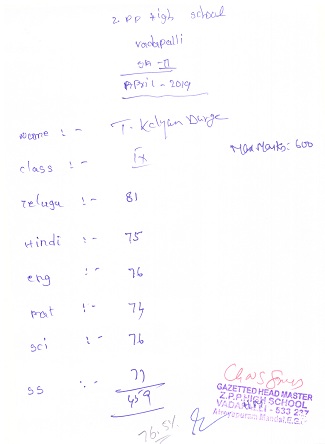 Z.PP High school
Vadapalli
SA - II
April - 2019
Name :- T. Kalyan Durga
class :- IX
Max Marks: 600
Telugu :- 81
Hindi :- 75
eng :- 76
mat :- 74
sci :- 76
SS :- 77
459
76.5%
GAZETTED HEAD MASTER
Z.P.P.HIGH SCHOOL
VADAPALLI - 533 237
Atreyapuram Mandal, E.G.